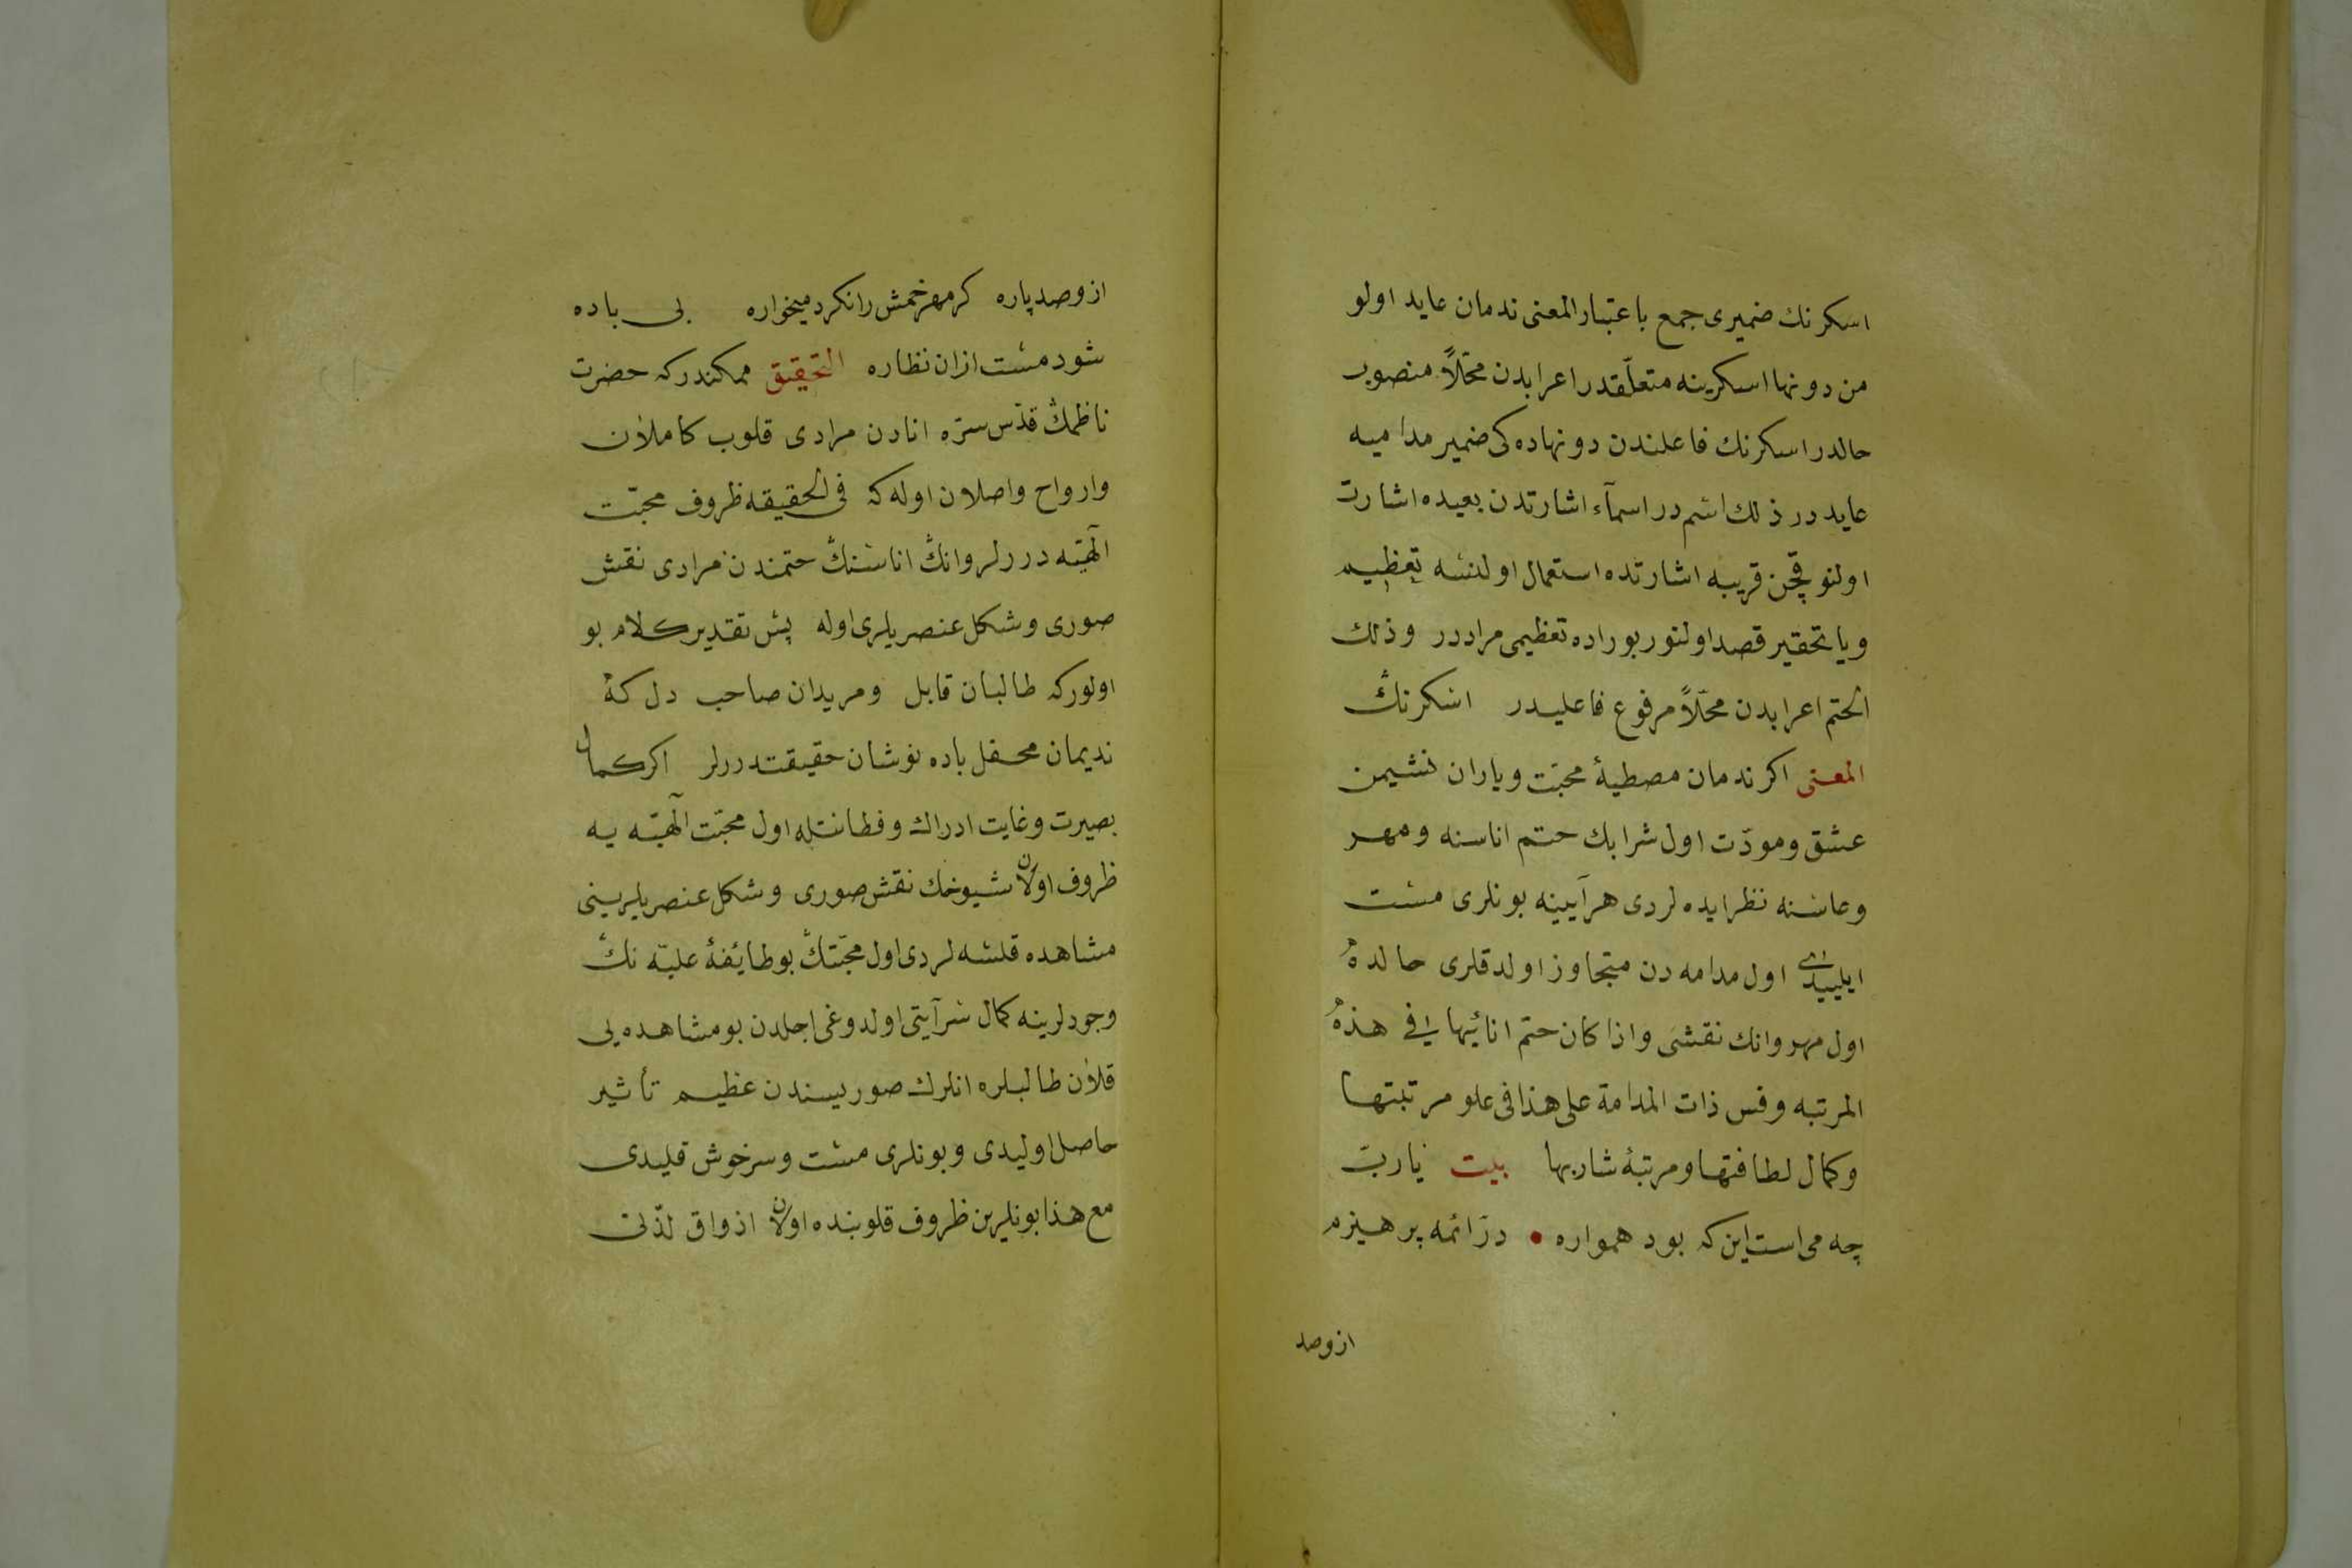 اسكرنك ضميرى جمع باعتبار المعنى ندمان عايد اولو
من دونها اسكرينه متعلّقدر اعرابدن محلّاً منصوب
حالدر اسكرنك فاعلندن دونهاده كى ضمير مداميه
عايددر ذلك اسم در اسمآء اشارتدن بعيده اشارت
اولنو قچن قريبه اشارتده استعمال اولنسه تعظيم
ويا تحقير قصد اولنور بوراده تعظيمى مراددر وذلك
الختم اعرابدن محلّاً مرفوع فاعليدر اسكرنڭ
المعنى اكر ندمان مصطبهٔ محبّت وياران نشيمن
عشق ومودّت اول شرابك ختم اناسنه ومهر
وعاسنه نظر ايده لردى هرآيينه بونلرى مست
ايليیدى اول مدامه دن متجاوز اولدقلرى حالده
اول مهر وانك نقشى واذا كان ختم انائيها فى هذه
المرتبه وقس ذات المدامة على هذا فى علو مرتبتها
وكمال لطافتها ومرتبهٔ شاربها بيت يارب
چه مى است اين كه بود همواره • پرهيزم
از وصد
از وصد پاره كر مهر خمش را نكرد ميخواره بى باده
شود مست ازان نظاره التحقيق ممكندركه حضرت
ناظمڭ قدّس سرّه انادن مرادى قلوب كاملان
وارواح واصلان اوله كه فى الحقيقه ظروف محبّت
الٓهيّه دررلر وانڭ اناسنڭ ختمندن مرادى نقش
صورى وشكل عنصريلرى اوله پس تقدير كلام بو
اولوركه طالبان قابل ومريدان صاحب دل كه
نديمان محفل باده نوشان حقيقتدررلر اكر كمال
بصيرت وغايت ادراك وفطانتله اول محبّت الٓهيّه يه
ظروف اولان شيوخك نقش صورى وشكل عنصريلرينى
مشاهده قلسه لردى اول محبّتڭ بو طائفهٔ عليّه نڭ
وجودلرينه كمال سرآيتى اولدوغى اجلدن بو مشاهده يى
قلان طالبلره انلرك صوريسندن عظيم تأثير
حاصل اوليدى وبونلرى مست وسرخوش قليدى
مع هذا بونلرين ظروف قلوبنده اولان اذواق لدّنى